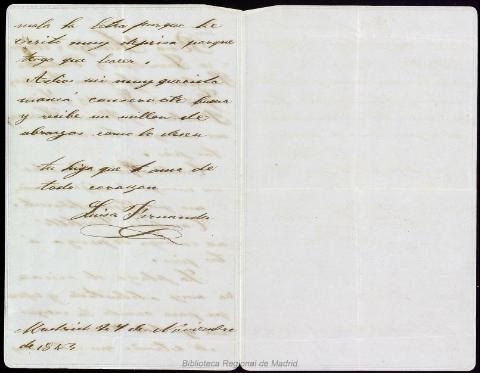 mala la letra porque he
escrito muy deprisa porque
tengo que hacer.
Adios mi muy querida
mamá consérvate buena
y recibe un millon de
abrazos como lo desea
tu hija que te ama de
todo corazon
Luisa Fernanda
Madrid de Noviembre
de
Biblioteca Regional de Madrid